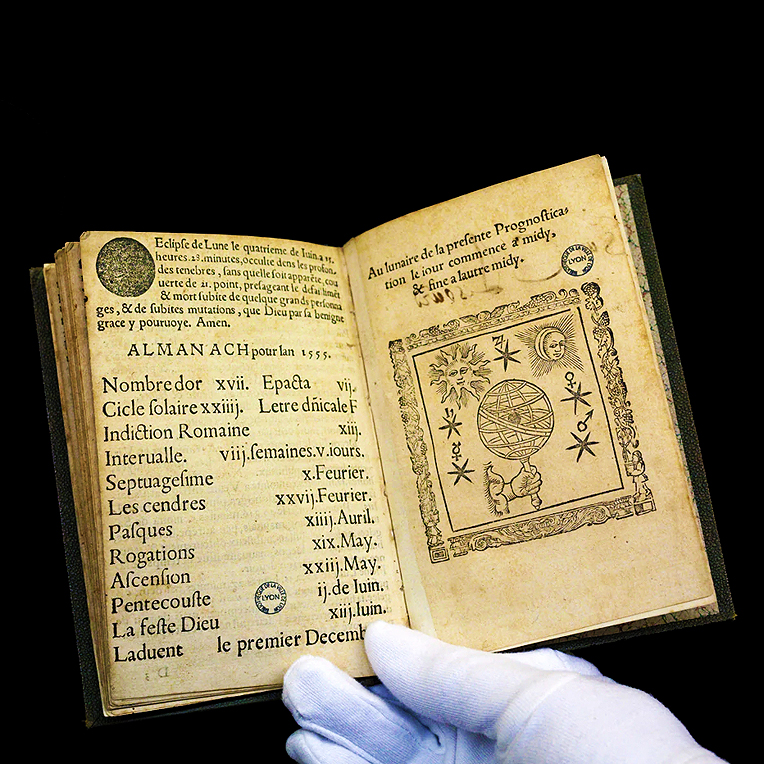 Eclipſe de Lune le quatrieme de Iuin a 15.
heures. 28. minutes, occulte dens les profon.
des tenebres, ſans quelle ſoit apparẽte, cou
uerte de 21. point, preſageant le
& mort ſubite de quelque grands perſonna
ges, & de ſubites mutations, que Dieu par ſa benigne
grace y pouruoye. Amen.
ALMANACH pour lan 1555.
Nombre dor xvii. Epacta vij.
Cicle ſolaire xxiiij. Letre dñicale F
Indiction Romaine xiij.
Interualle. viij.ſemaines.v.iours.
Septuageſime x.Feurier.
Les cendres xxvij.Feurier.
Paſques xiiij.Auril.
Rogations xix.May.
Aſcenſion xxiij.May.
Pentecouſte ij.de Iuin.
La feſte Dieu xiij.Iuin.
Laduent le premier Decemb
LYON
Au lunaire de la preſente Prognoſtica-
tion le iour commence a midy,
& fine a lautre midy.
LYON